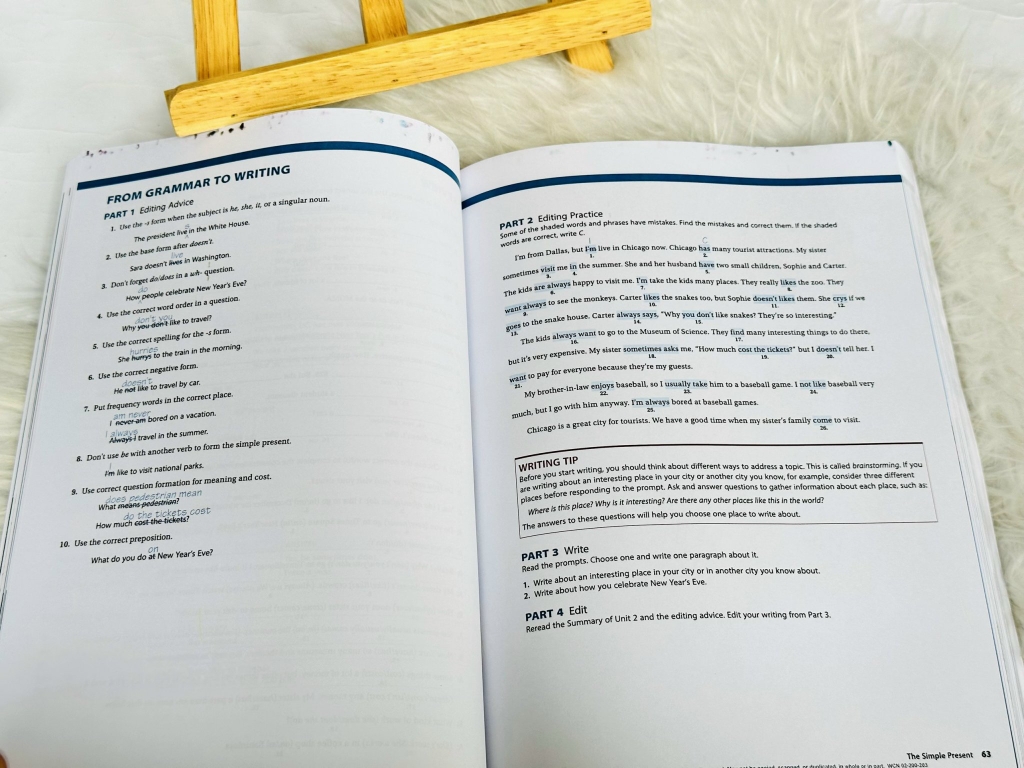 FROM GRAMMAR TO WRITING
PART 1 Editing Advice
1. Use the -s form when the subject is he, she, it, or a singular noun.
s
The president live in the White House.
2. Use the base form after doesn't.
live
Sara doesn't lives in Washington.
3. Don't forget do/does in a wh- question.
do
How people celebrate New Year's Eve?
4. Use the correct word order in a question.
don't you
Why you don't like to travel?
5. Use the correct spelling for the -s form.
hurries
She hurrys to the train in the morning.
6. Use the correct negative form.
doesn't
He not like to travel by car.
7. Put frequency words in the correct place.
am never
I never am bored on a vacation.
I always
Always I travel in the summer.
8. Don't use be with another verb to form the simple present.
I
I'm like to visit national parks.
9. Use correct question formation for meaning and cost.
does pedestrian mean
What means pedestrian?
do the tickets cost
How much cost the tickets?
10. Use the correct preposition.
on
What do you do at New Year's Eve?
PART 2 Editing Practice
Some of the shaded words and phrases have mistakes. Find the mistakes and correct them. If the shaded
words are correct, write C.
I C
I'm from Dallas, but I'm live in Chicago now. Chicago has many tourist attractions. My sister
1. 2.
sometimes visit me in the summer. She and her husband have two small children, Sophie and Carter.
3. 4. 5.
The kids are always happy to visit me. I'm take the kids many places. They really likes the zoo. They
6. 7. 8.
want always to see the monkeys. Carter likes the snakes too, but Sophie doesn't likes them. She crys if we
9. 10. 11. 12.
goes to the snake house. Carter always says, "Why you don't like snakes? They're so interesting."
13. 14. 15.
The kids always want to go to the Museum of Science. They find many interesting things to do there,
16. 17.
but it's very expensive. My sister sometimes asks me, "How much cost the tickets?" but I doesn't tell her. I
18. 19. 20.
want to pay for everyone because they're my guests.
21.
My brother-in-law enjoys baseball, so I usually take him to a baseball game. I not like baseball very
22. 23. 24.
much, but I go with him anyway. I'm always bored at baseball games.
25.
Chicago is a great city for tourists. We have a good time when my sister's family come to visit.
26.
WRITING TIP
Before you start writing, you should think about different ways to address a topic. This is called brainstorming. If you
are writing about an interesting place in your city or another city you know, for example, consider three different
places before responding to the prompt. Ask and answer questions to gather information about each place, such as:
Where is this place? Why is it interesting? Are there any other places like this in the world?
The answers to these questions will help you choose one place to write about.
PART 3 Write
Read the prompts. Choose one and write one paragraph about it.
1. Write about an interesting place in your city or in another city you know about.
2. Write about how you celebrate New Year's Eve.
PART 4 Edit
Reread the Summary of Unit 2 and the editing advice. Edit your writing from Part 3.
The Simple Present 63
or duplicated, in whole or in part. WCN 02-200-203